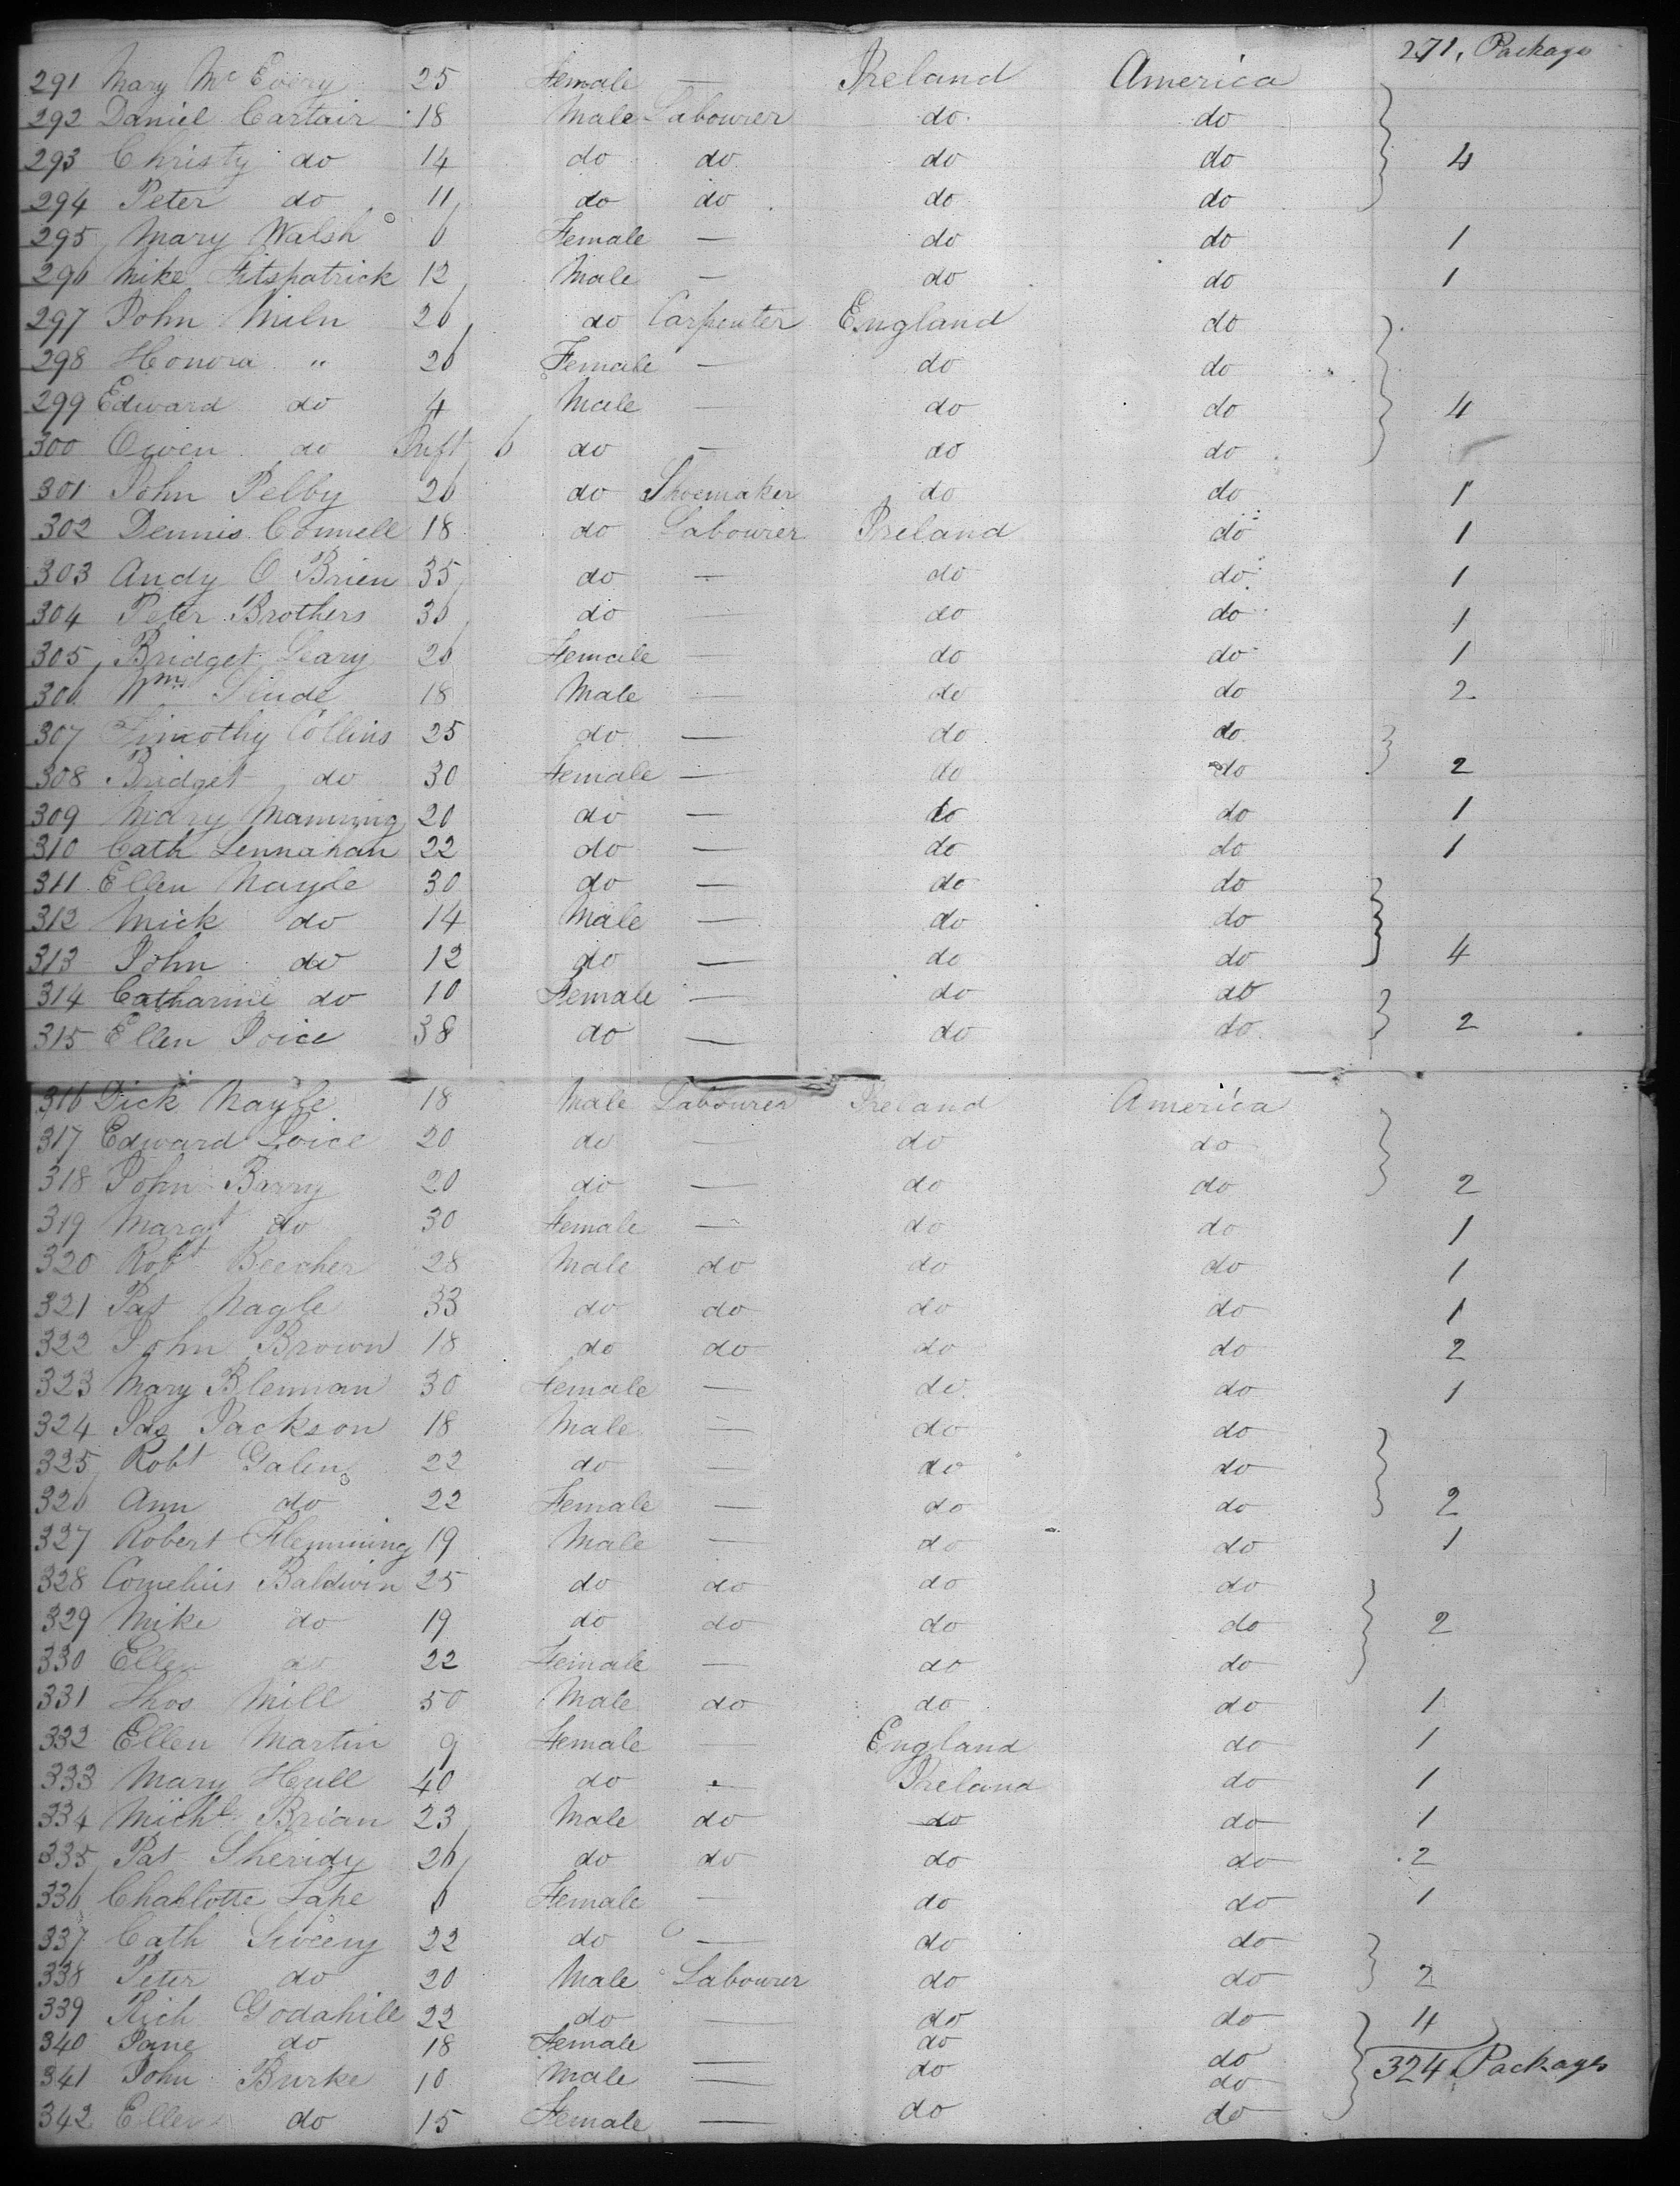 271, Packages
291 Mary McEvery 25 Female — Ireland America
292 Daniel Cartair 18 Male Labourer do do
293 Christy do 14 do do do do 4
294 Peter do 11 do do do do
295 Mary Walsh 6 Female — do do 1
296 Mike Fitspatrick 12 Male — do do 1
297 John Miln 26 do Carpenter England do
298 Honora " 26 Female — do do
299 Edward do 4 Male — do do 4
300 Owen do Inft 6 do — do do
301 John Pelby 26 do Shoemaker do do 1
302 Dennis Connell 18 do Labourer Ireland do 1
303 Andy O Brien 35 do — do do 1
304 Peter Brothers 36 do — do do 1
305 Bridget Leary 26 Female — do do 1
306 Wm 18 Male — do do 2
307 Timothy Collins 25 do — do do
308 Bridget do 30 Female — do do 2
309 Mary Manning 20 do — do do 1
310 Cath Lennahan 22 do — do do 1
311 Ellen Nayle 30 do — do do
312 Mick do 14 Male — do do
313 John do 12 do — do do 4
314 Catharine do 10 Female — do do
315 Ellen Joice 38 do — do do 2
316 Dick Nayle 18 Male Labourer Ireland America
317 Edward Joice 20 do — do do
318 John Barry 20 do — do do 2
319 Margt do 30 Female — do do 1
320 Robt Beecher 28 Male do do do 1
321 Pat Nagle 33 do do do do 1
322 John Brown 18 do do do do 2
323 Mary Blennan 30 Female — do do 1
324 Jas Jackson 18 Male — do do
325 Robt Galen 22 do — do do
326 Ann do 22 Female — do do 2
327 Robert Flemming 19 Male — do do 1
328 Cornelius Baldwin 25 do do do do
329 Mike do 19 do do do do 2
330 Ellen do 22 Female — do do
331 Thos Mill 50 Male do do do 1
332 Ellen Martin 9 Female — England do 1
333 Mary Hull 40 do — Ireland do 1
334 Michl Brian 23 Male do do do 1
335 Pat Sheridy 26 do do do do 2
336 Chahlotte Lape 6 Female — do do 1
337 Cath Sweeny 22 do — do do
338 Peter do 20 Male Labourer do do 2
339 Rich Godahill 22 do — do do 4
340 Jane do 18 Female — do do
324 Packages
341 John Burke 10 Male — do do
342 Ellen do 15 Female — do do